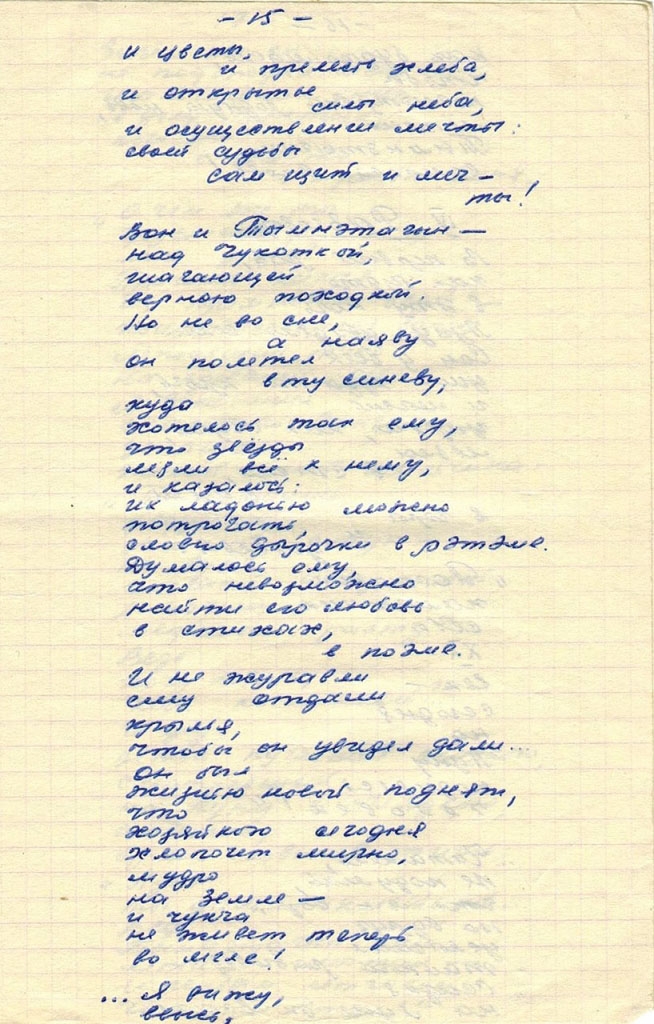 – 15 –
и цветы,
и прелесть хлеба,
и открытые
силы неба,
и осуществление мечты:
своей судьбы
сам щит и меч –
ты!
Вон и Тымнэтагин –
над Чукоткой,
шагающей
верною походкой.
Но не во сне,
а наяву
он полетел
в ту синеву,
куда
хотелось так ему,
что звёзды
шли всё к нему,
и казалось:
их ладонью можно
потрогать,
словно дырочки в рэтэме.
Думалось ему,
что невозможно
найти его любовь
в стихах,
в поэме.
И не журавли
ему отдали
крылья,
чтобы он увидел дали...
он был
жизнью новой поднят,
что
хозяйкою сегодня
хлопочет мирно,
мудро
на Земле –
и чукча
не живет теперь
во мгле!
... Я вижу,